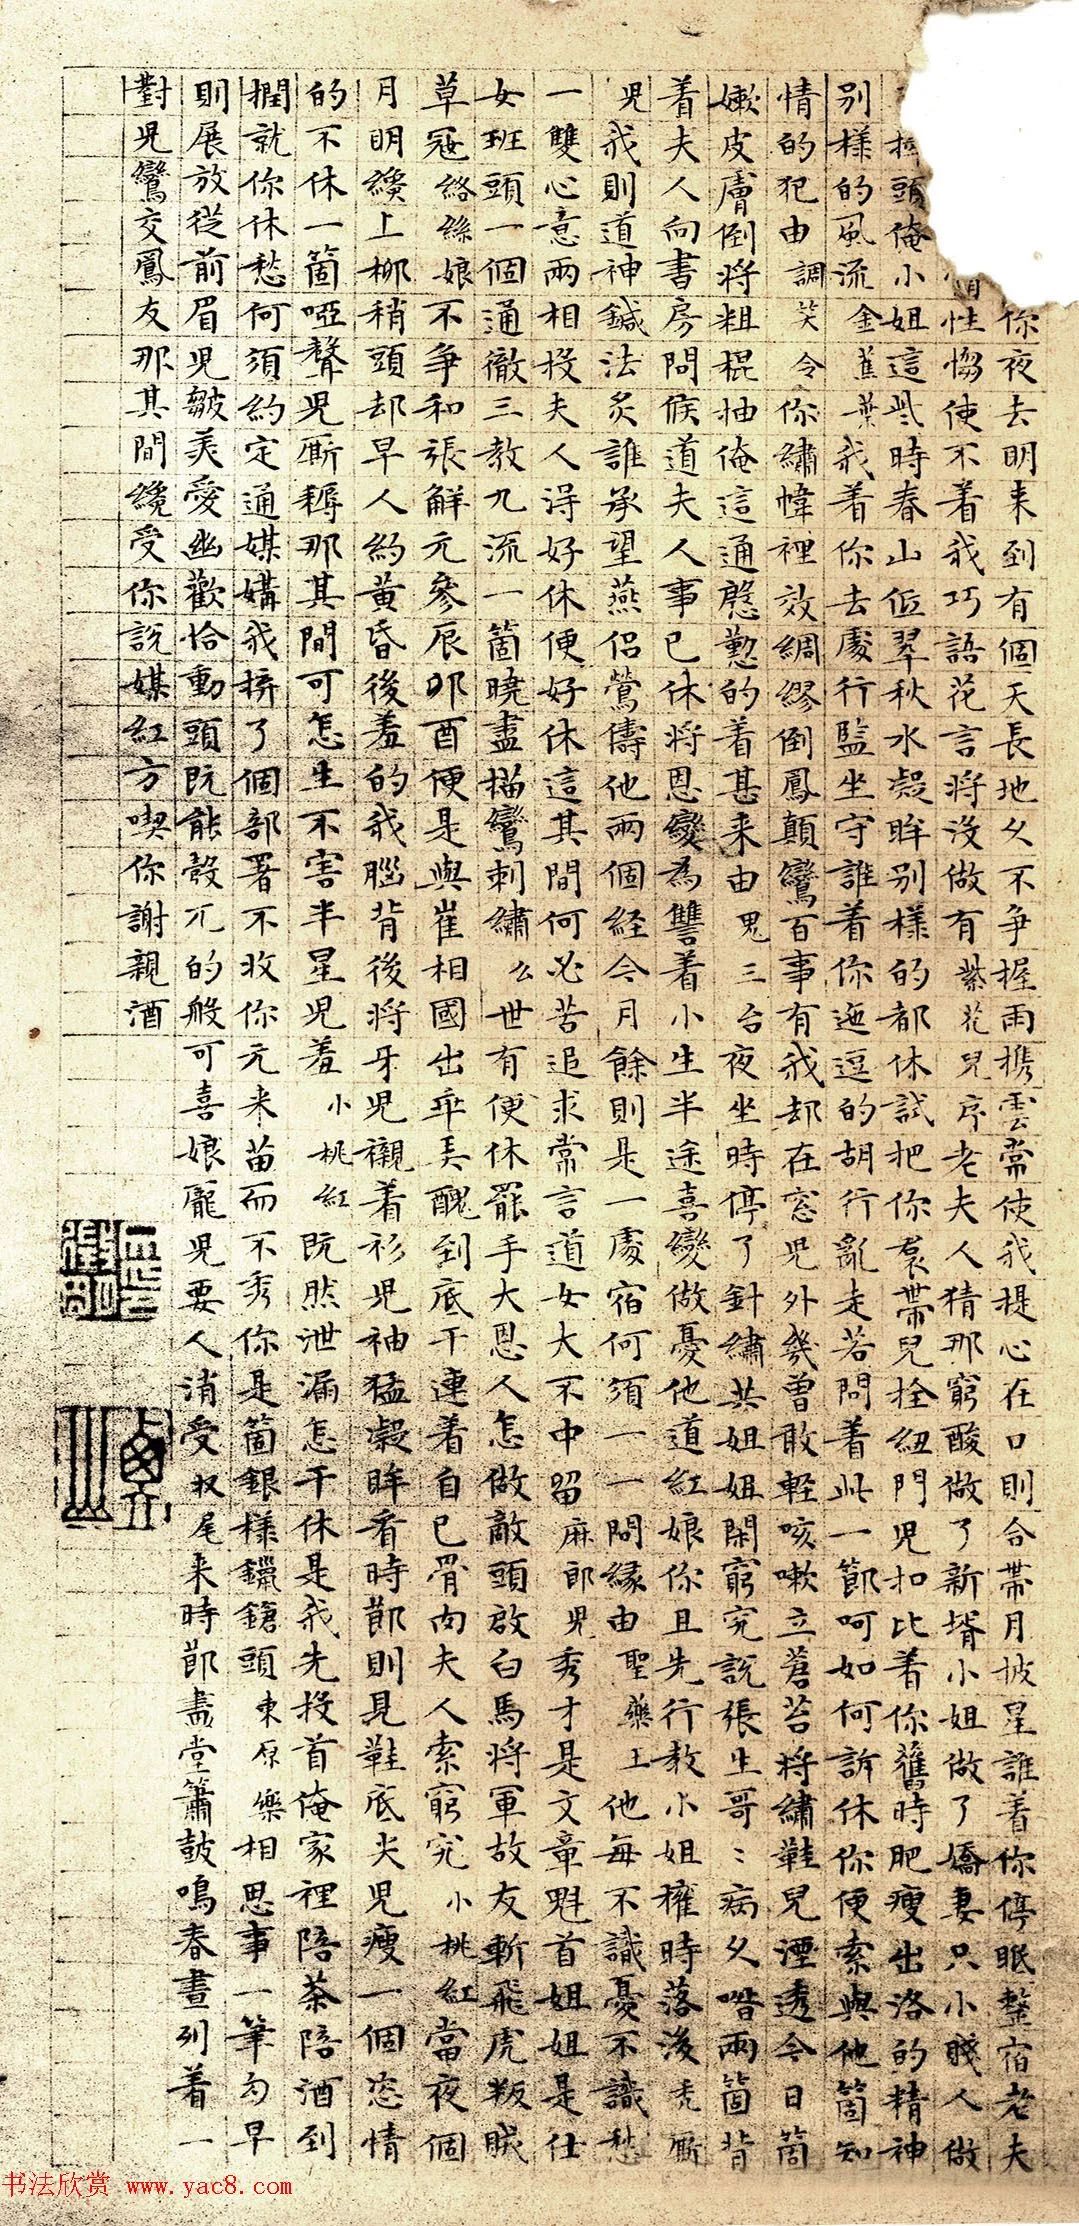 你夜去明来到有個天長地久不争握雨携雲常使我提心在口則合帶月披星誰着你停眠整宿老夫
情性㑳使不着我巧語花言將没做有紫花兒序老夫人猜那窮酸做了新壻小姐做了嬌妻只小賤人做
頭俺小姐這些時春山低翠秋水凝眸别樣的都休試把你裙帶兒拴紐門兒扣比着你舊時肥瘦出洛的精神
别樣的風流金蕉葉我着你去處行監坐守誰着你迤逗的胡行亂走若問着此一節呵如何訴休你便索與他箇知
情的犯由調笑令你繡幃裡效綢繆倒鳳顛鸞百事有我却在窓兒外幾曾敢輕咳嗽立蒼苔將繡鞋兒湮透今日箇
嫩皮膚倒將粗棍抽俺這通慇懃的着甚来由鬼三台夜坐時停了針繡共姐姐閑窮究說張生哥〻病久喒兩箇背
着夫人向書房問候道夫人事已休將恩變為讐着小生半途喜變做憂他道紅娘你且先行教小姐權時落後禿厮
兒我則道神鍼法炙誰承望燕侣鶯儔他兩個経今月餘則是一處宿何須一一問縁由聖藥王他每不識憂不識愁
一雙心意兩相投夫人淂好休便好休這其間何必苦追求常言道女大不中留麻郎兒秀才是文章魁首姐姐是仕
女班頭一個通徹三教九流一箇曉盡描鸞刺繡么世有便休罷手大恩人怎做敵頭啟白馬將軍故友斬飛虎叛賊
草寇絡絲娘不争和張解元參辰卯酉便是與崔相國出乖弄醜到底干連着自己骨肉夫人索窮究小桃紅當夜個
月明纔上柳稍頭却早人約黄昏後羞的我腦背後將牙兒襯着衫兒袖猛凝眸看時節則見鞋底尖兒瘦一個恣情
的不休一箇啞聲兒厮耨那其間可怎生不害半星兒羞小桃紅既然泄漏怎干休是我先投首俺家裡陪茶陪酒到
撋就你休愁何須約定通媒媾我拚了個部署不收你元来苗而不秀你是箇銀樣鑞鎗頭東原樂相思事一筆勾早
則展放從前眉兒皺美愛幽歡恰動頭既能彀兀的般可喜娘龐兒要人消受收尾来時節畫堂簫鼓鳴春晝列着一
對兒鸞交鳳友那其間纔受你說媒紅方喫你謝親酒
书法欣赏 www.yac8.com